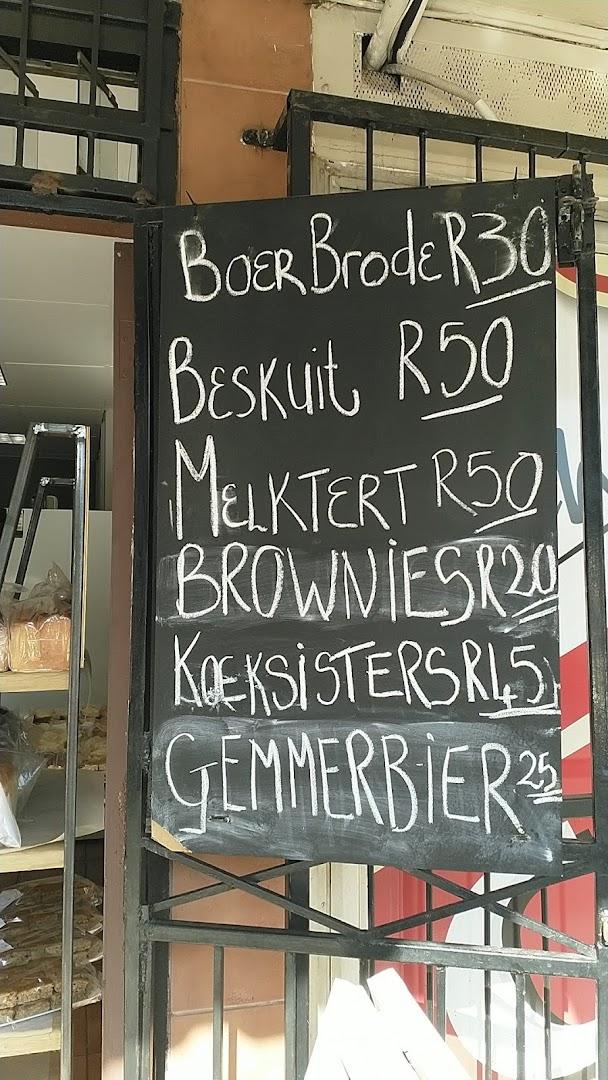 BoerBrode R30
Beskuit R50
Melktert R50
BROWNIES R20
KOEKSISTERS R45
GEMMERBIER 25